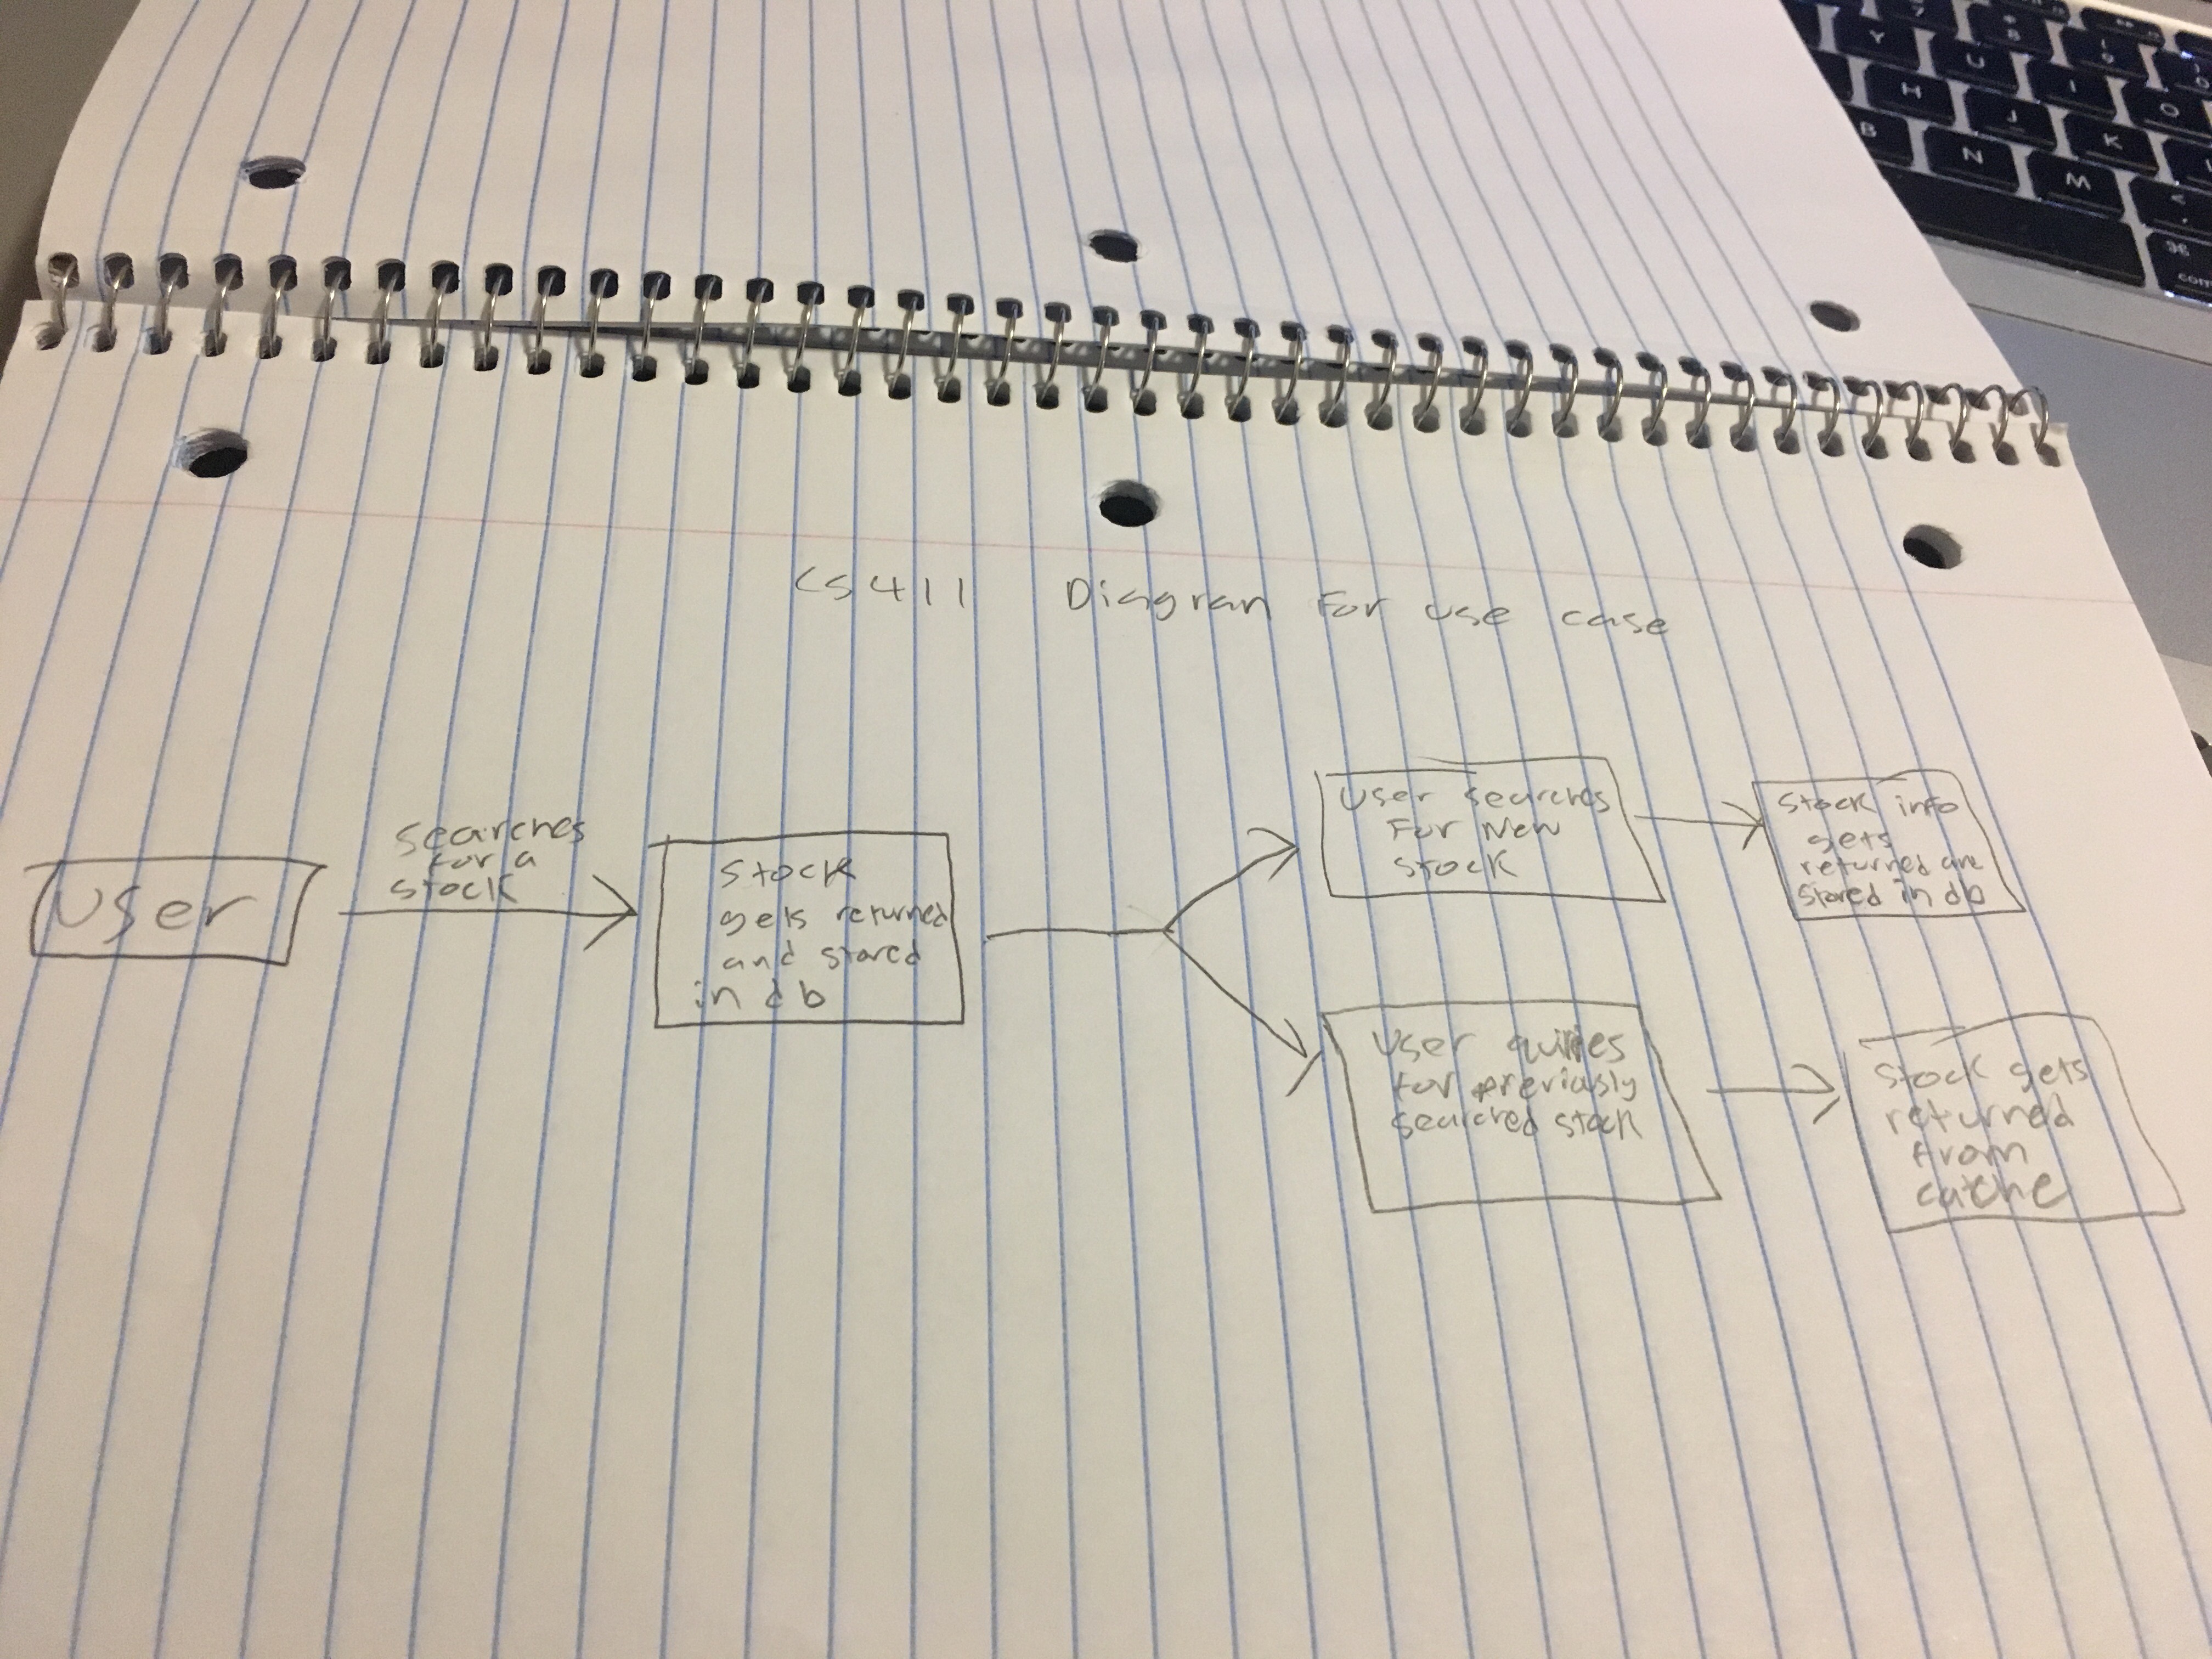 Y
U
I
O
H
J
K
B
N
M
⌘
CS411 Diagram For use case
User
searches
for a
stock
Stock
gets returned
and stored
in db
User searches
For New
Stock
Stock info
gets
returned and
stored in db
User
for previously
searched stock
Stock gets
returned
from
catche